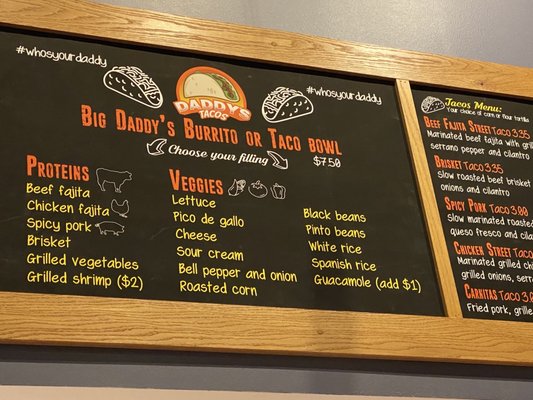 #whosyourdaddy
DADDY'S
TACOS
#whosyourdaddy
Big Daddy's Burrito or Taco bowl
Choose your filling
$7.50
Proteins
Beef fajita
Chicken fajita
Spicy pork
Brisket
Grilled vegetables
Grilled shrimp ($2)
Veggies
Lettuce
Pico de gallo
Cheese
Sour cream
Bell pepper and onion
Roasted corn
Black beans
Pinto beans
White rice
Spanish rice
Guacamole (add $1)
Tacos Menu:
Your choice of corn or flour tortilla
Beef Fajita Street Taco 3.35
Marinated beef fajita with gril
serrano pepper and cilantro
Brisket Taco 3.35
Slow roasted beef brisket
onions and cilantro
Spicy Pork Taco 3.00
Slow marinated roasted
queso fresco and cila
Chicken Street Taco
Marinated grilled chi
grilled onions, serra
Carnitas Taco 3.0
Fried pork, grilled